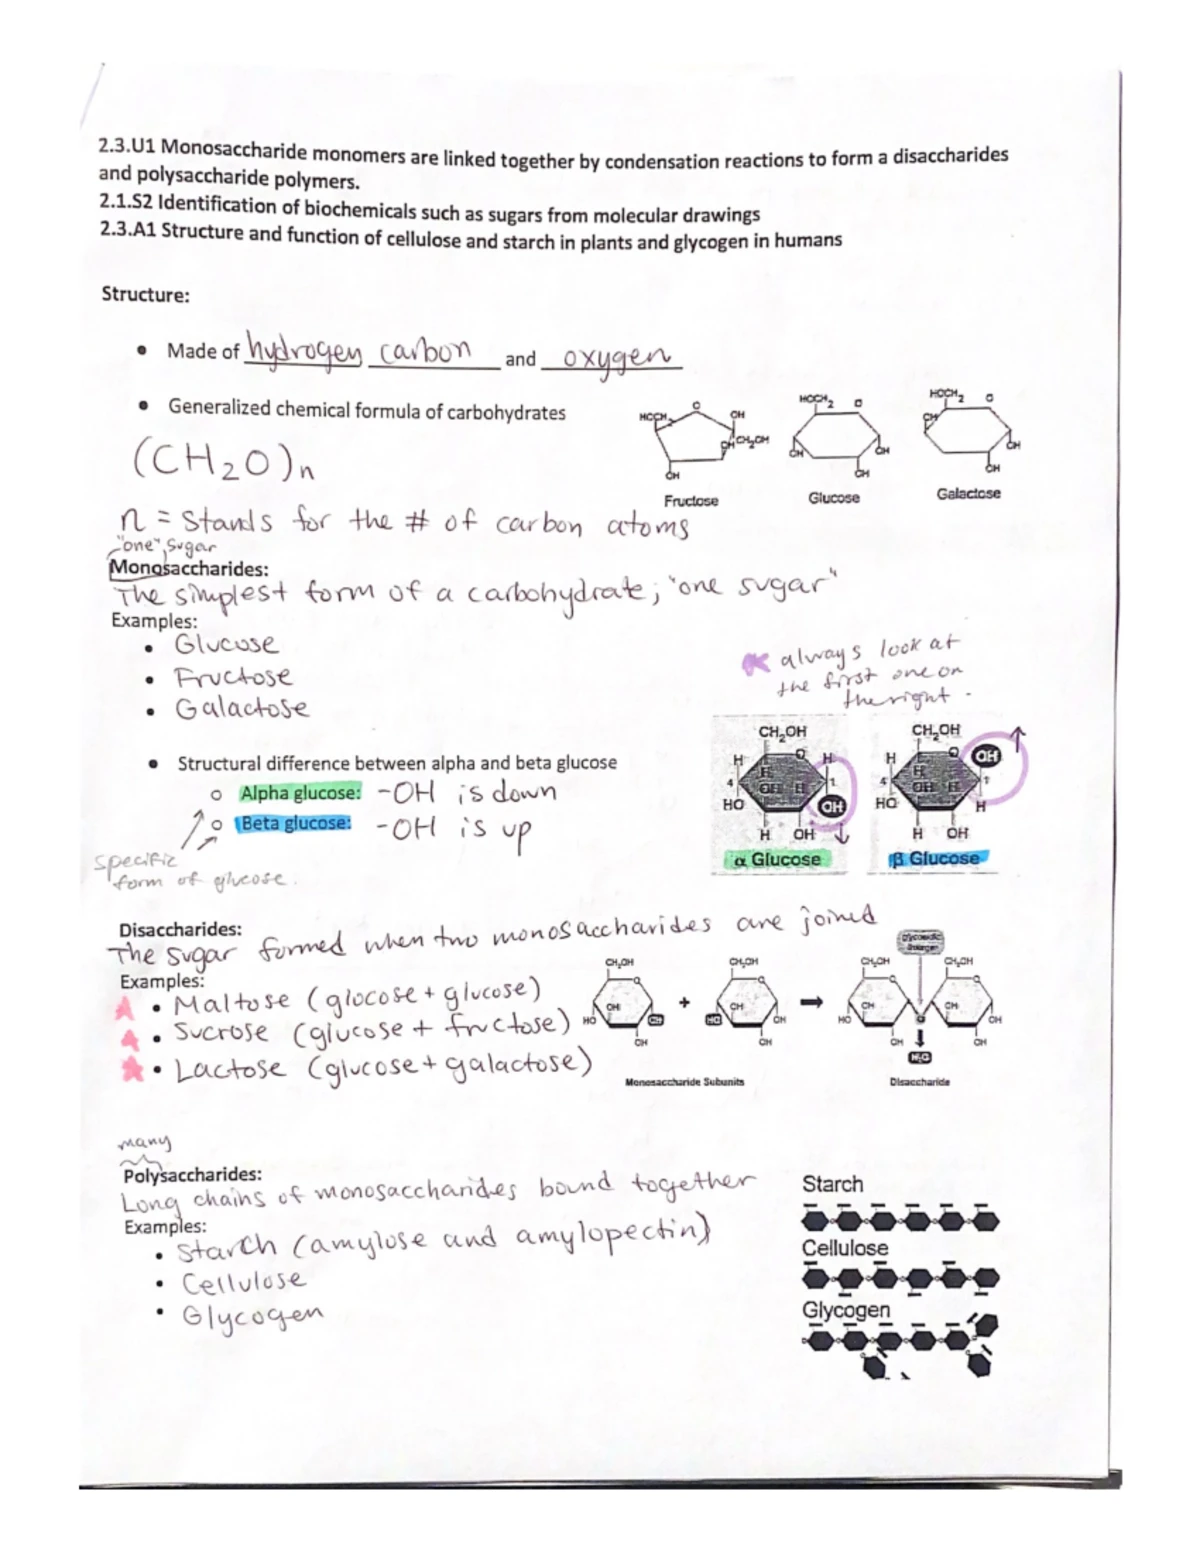 2.3.U1 Monosaccharide monomers are linked together by condensation reactions to form a disaccharides
and polysaccharide polymers.
2.1.S2 Identification of biochemicals such as sugars from molecular drawings
2.3.A1 Structure and function of cellulose and starch in plants and glycogen in humans
Structure:
• Made of hydrogen carbon and oxygen
• Generalized chemical formula of carbohydrates
(CH2O)n
HOCH2 O
HOCH2 O
HOCH O OH
CH2OH
OH
OH OH
OH
OH OH
OH
Fructose Glucose Galactose
n = stands for the # of carbon atoms
"one", sugar
Monosaccharides:
The simplest form of a carbohydrate; "one sugar"
Examples:
• Glucose
• Fructose
• Galactose
* always look at
the first one on
the right.
• Structural difference between alpha and beta glucose
o Alpha glucose: -OH is down
o Beta glucose: -OH is up
specific
form of glucose.
CH2OH
H O H
H
4 OH H 1
HO OH
H OH
α Glucose
CH2OH
H O OH
H
4 OH H 1
HO H
H OH
β Glucose
Disaccharides:
The sugar formed when two monosaccharides are joined
Examples:
• Maltose (glocose + glucose)
• Sucrose (glucose + fructose)
• Lactose (glucose + galactose)
CH2OH CH2OH CH2OH CH2OH
O O O O
OH + OH → OH OH
HO OH HO OH HO O OH
OH OH OH OH
H2O
Monosaccharide Subunits Disaccharide
many
Polysaccharides:
Long chains of monosaccharides bound together
Examples:
• Starch (amylose and amylopectin)
• Cellulose
• Glycogen
Starch
Cellulose
Glycogen